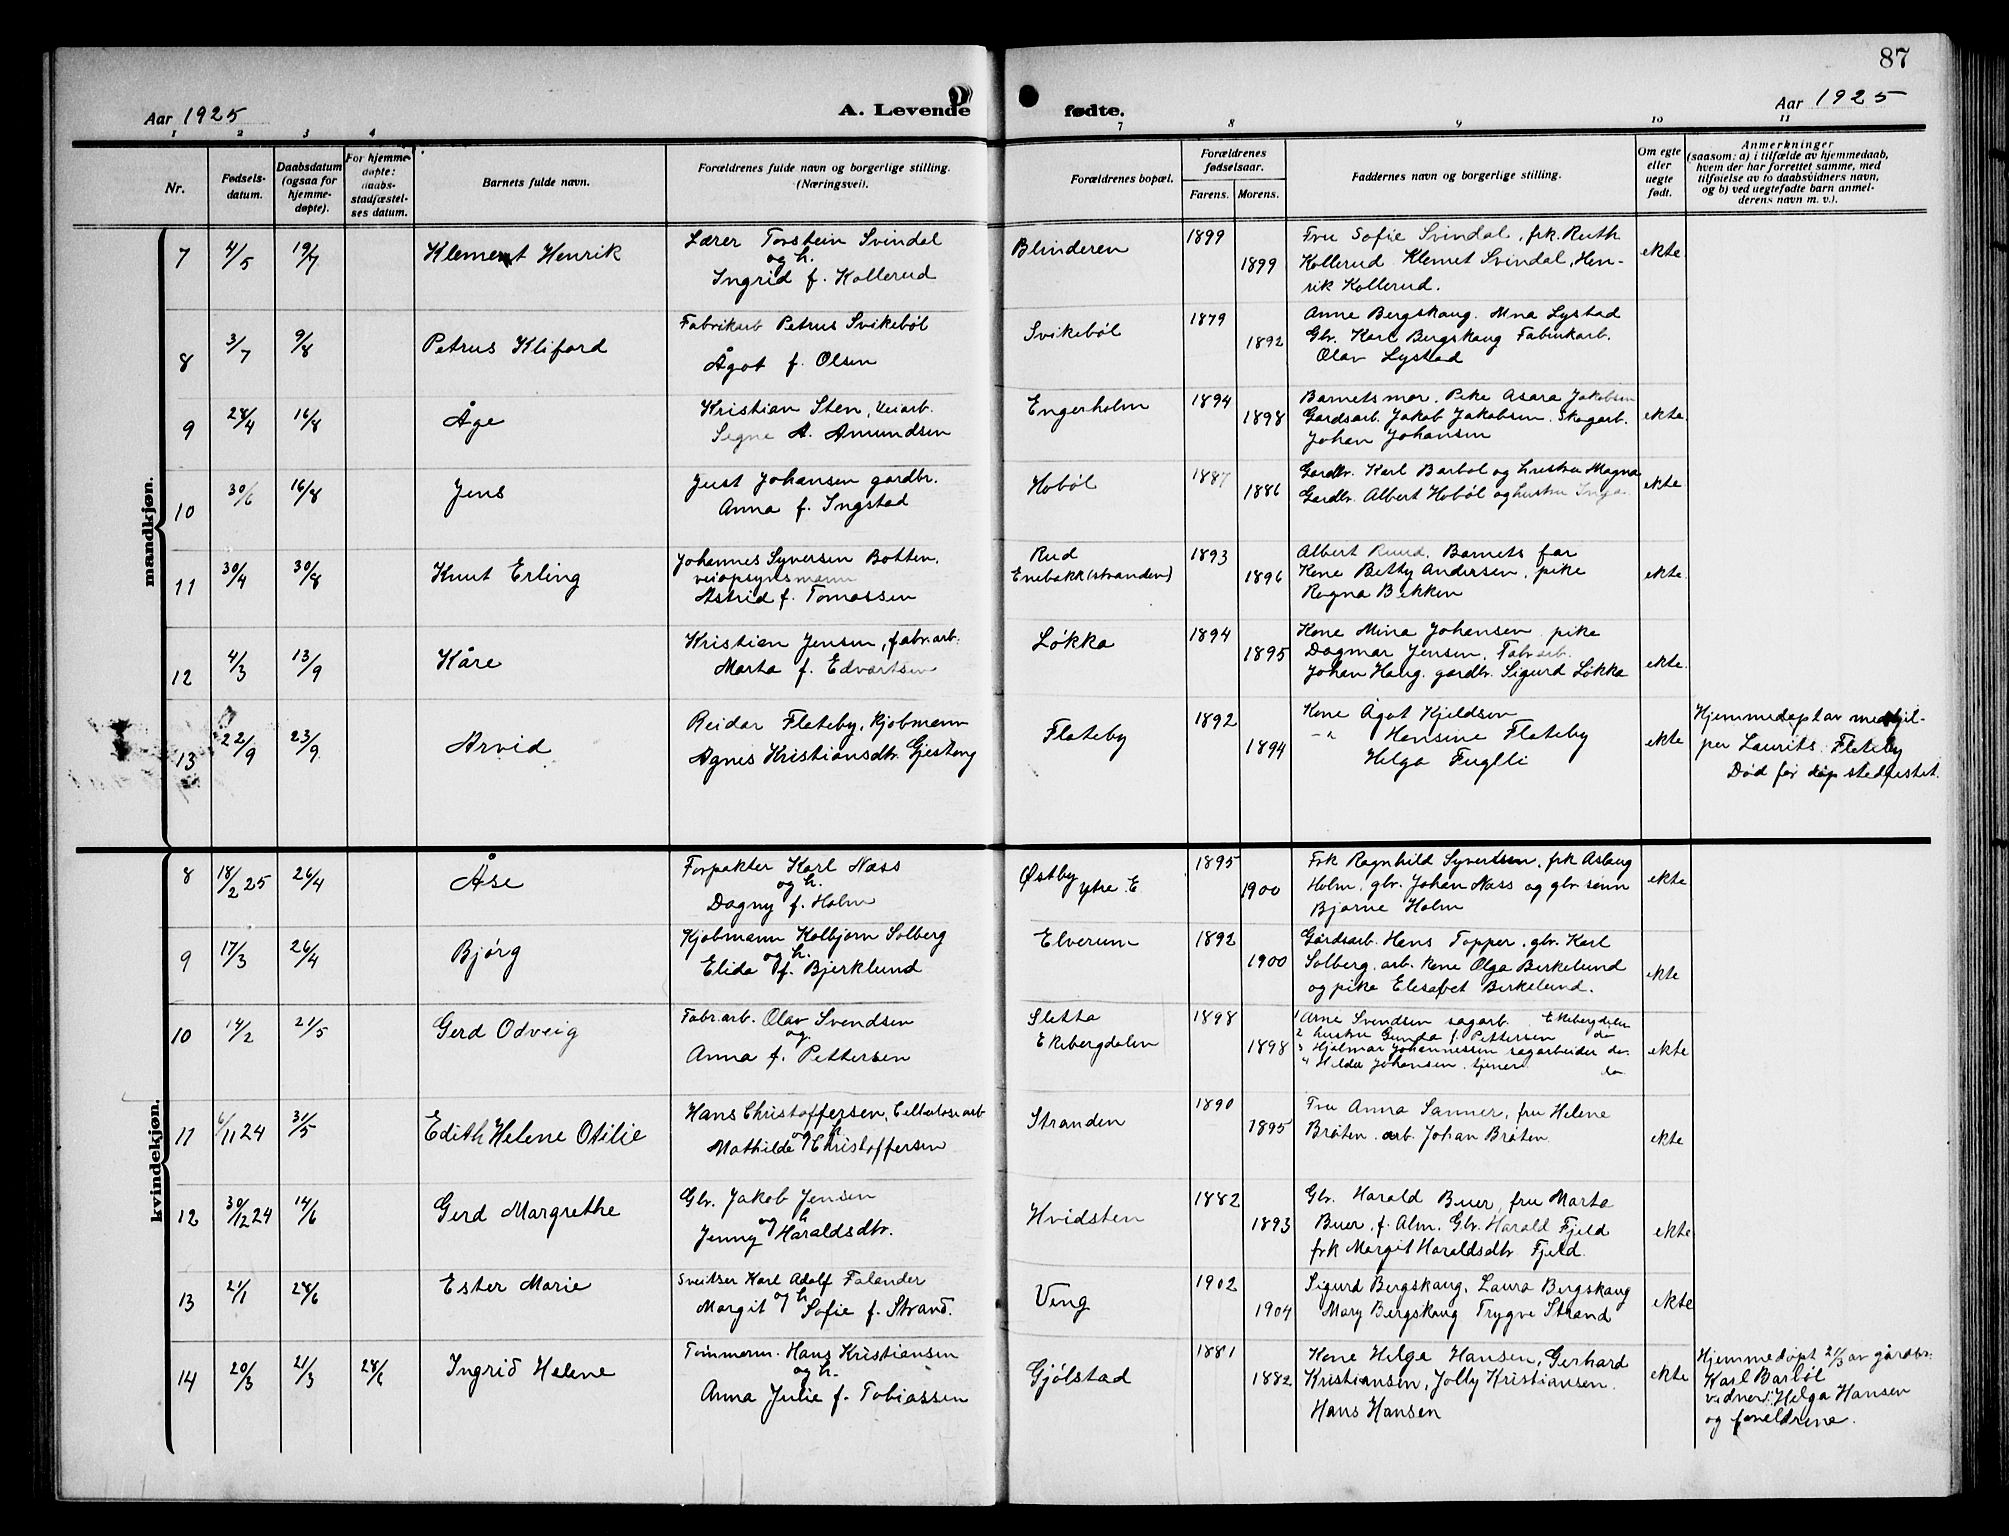 87
Aar 1925
A. Levende
fødte.
Aar 1925
1 2 3 4 7 8 9 10 11
Nr.
Fødsels-
datum.
Daabsdatum
(ogsaa for
hjemme-
døpte).
For hjemme-
døpte:
daabs-
stadfæstel-
ses datum.
Barnets fulde navn.
Forældrenes fulde navn og borgerlige stilling.
(Næringsvei).
Forældrenes bopæl.
Forældrenes
fødselsaar.
Farens. Morens.
Faddernes navn og borgerlige stilling.
Om egte
eller
uegte
født.
Anmerkninger
(saasom: a) i tilfælde av hjemmedaab,
hvem der har forrettet samme, med
tilføielse av to daabsvidners navn,
og b) ved uegtefødte barn anmel-
derens navn m. v.).
mandkjøn.
7 4/5 19/7 Klement Henrik
Lærer Torstein Svindal
og h.
Ingrid f. Kollerud
Blinderen 1899 1899
Fru Sofie Svindal, frk. Ruth
Kollerud Klemet Svindal, Hen-
rik Kollerud.
ekte
8 3/7 9/8 Petrus Kliford
Fabrikarb Petrus Svikebøl
Ågot f. Olsen
Svikebøl 1879 1892
Anne Bergskaug. Mna Lystad
Gbr. Karl Bergskaug Fabrikarb.
Olav Lystad
9 28/4 16/8 Åge
Kristian Sten, Veiarb.
Segne A. Amundsen
Engerholm 1894 1898
Barnets mor. Pike Asara Jakobsen
Gardsarb. Jakob Jakobsen. Skogarb.
Johan Johansen
ekte
10 30/6 16/8 Jens
Just Johansen gardbr.
Anna f. Ingstad
Hobøl 1887 1886
Gardbr. Karl Barbøl og hustru Magna
Gardbr. Albert Hobøl og hustru Inga
ekte
11 30/4 30/8 Knut Erling
Johannes Syversen Botten,
veiopsynsmann
Astrid f. Tomassen
Rud
Enebakk (stranden)
1893 1896
Albert Ruud, Barnets far
Kone Betty Andersen, pike
Ragna Bekken
ekte.
12 4/3 13/9 Kåre
Kristian Jensen, fabr.arb.
Marta f. Edvartsen
Løkka 1894 1895
Kone Mina Johansen pike
Dagmar Jensen, Fabr.arb.
Johan Haug, gardbr. Sigurd Løkka
ekte.
13 22/9 23/9 Arvid
Reidar Flateby, Kjøbmann
Agnes Kristiansdtr. Gjestang
Flateby 1892 1894
Kone Ågot Kjeldsen
-"- Hensine Flateby
Helga Fuglli
ekte
Hjemmedøpt av medhjel-
per Laurits Flateby
Død før dåp stedfestet.
kvindekjøn.
8 18/2 25 26/4 Åse
Forpakter Karl Næss
og h.
Dagny f. Holm
Østby
ytre E
1895 1900
Frk Ragnhild Syvertsen, frk Aslaug
Holm, gbr. Johan Næss og gbr. sønn
Bjarne Holm
ekte
9 17/3 26/4 Bjørg
Kjøbmann Kolbjørn Solberg
og h.
Elida f. Bjerklund
Elverum 1892 1900
Gårdsarb. Hans Topper, gbr. Karl
Solberg. arb. kone Olga Birkelund
og pike Elisabet Birkelund.
ekte
10 14/2 21/5 Gerd Odveig
Fabr.arb. Olav Svendsen
og
Anna f. Pettersen
Sletta
Ekebergdalen
1898 1898
1 Arne Svendsen sagarb. Ekebergdalen
2 hustru Gunda f. Pettersen do
3 Hjalmar Johannessen sagarbeider do.
4 Hilda Johansen, tjener do
ekte
11 6/11 24 31/5 Edith Helene Otilie
Hans Christoffersen, Cellulosearb
og h
Mathilde Christoffersen
Stranden 1890 1895
Fru Anna Sanner, fru Helene
Bråten. arb. Johan Bråten
ekte
12 30/12 24 14/6 Gerd Margrethe
Gbr. Jakob Jensen
og h
Jenny Haraldsdtr.
Hvidsten 1882 1893
Gbr. Harald Buer, fru Marta
Buer, f. Alm. Gbr. Harald Fjeld
frk Margit Haraldsdtr Fjeld.
ekte
13 21/1 28/6 Ester Marie
Sveitser Karl Adolf Falander
og h.
Margit Sofie f. Strand.
Ving 1902 1904
Sigurd Bergskaug. Laura Bergskaug
Mary Bergskaug Trygve Strand
ekte
14 20/3 21/3 28/6 Ingrid Helene
Tømmerm. Hans Kristiansen
og h.
Anna Julie f. Tobiassen
Gjølstad 1881 1882
Kone Helga Hansen, Gerhard
Kristiansen, Jolly Kristiansen.
Hans Hansen
ekte
Hjemmedøpt 21/3 av gårdbr.
Karl Barbøl
vidner: Helga Hansen
og foreldrene.